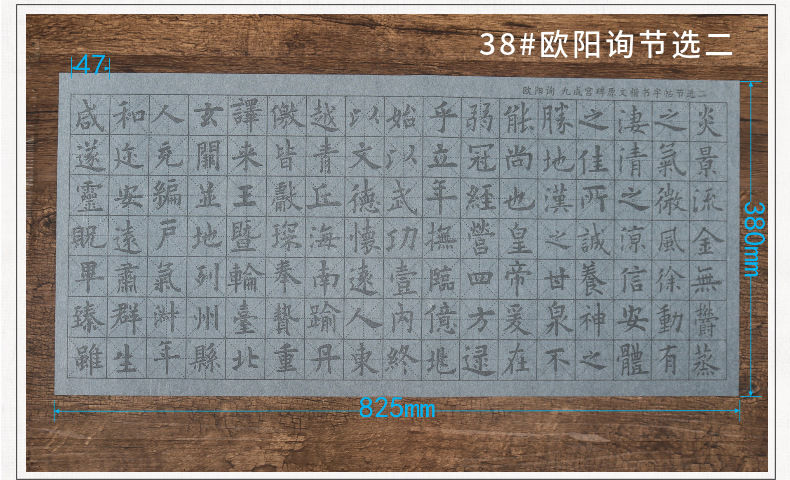 38#欧阳询节选二
47
欧阳询 九成宫碑原文楷书字帖节选二
炎景流金無鬱蒸
之氣微風徐動有
淒清之涼信安體
之佳所誠養神之
勝地漢之甘泉不
能尚也皇帝爰在
弱冠經營四方逮
乎立年撫臨億兆
始以武功壹内終
以文德懷遠人東
越青丘海南踰丹
儌皆獻琛奉贄重
譯来王暨輪臺北
玄闕並地列州縣
人充編戶氣淑年
和迩安遠肅群生
咸遂靈貺畢臻雖
380mm
825mm